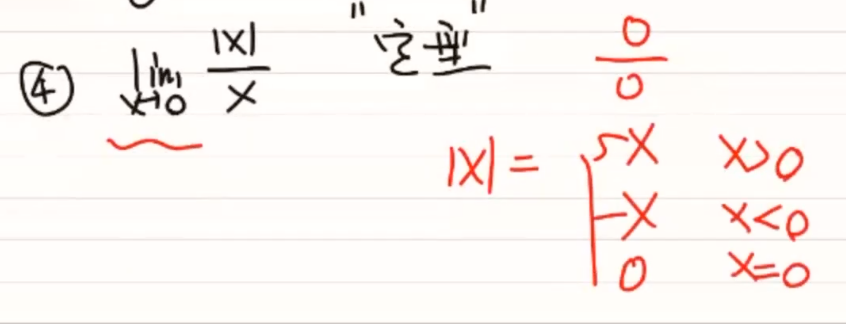 ④ lim x→0 |x|/x "定型" 0/0
|x| = { x x>0
-x x<0
0 x=0